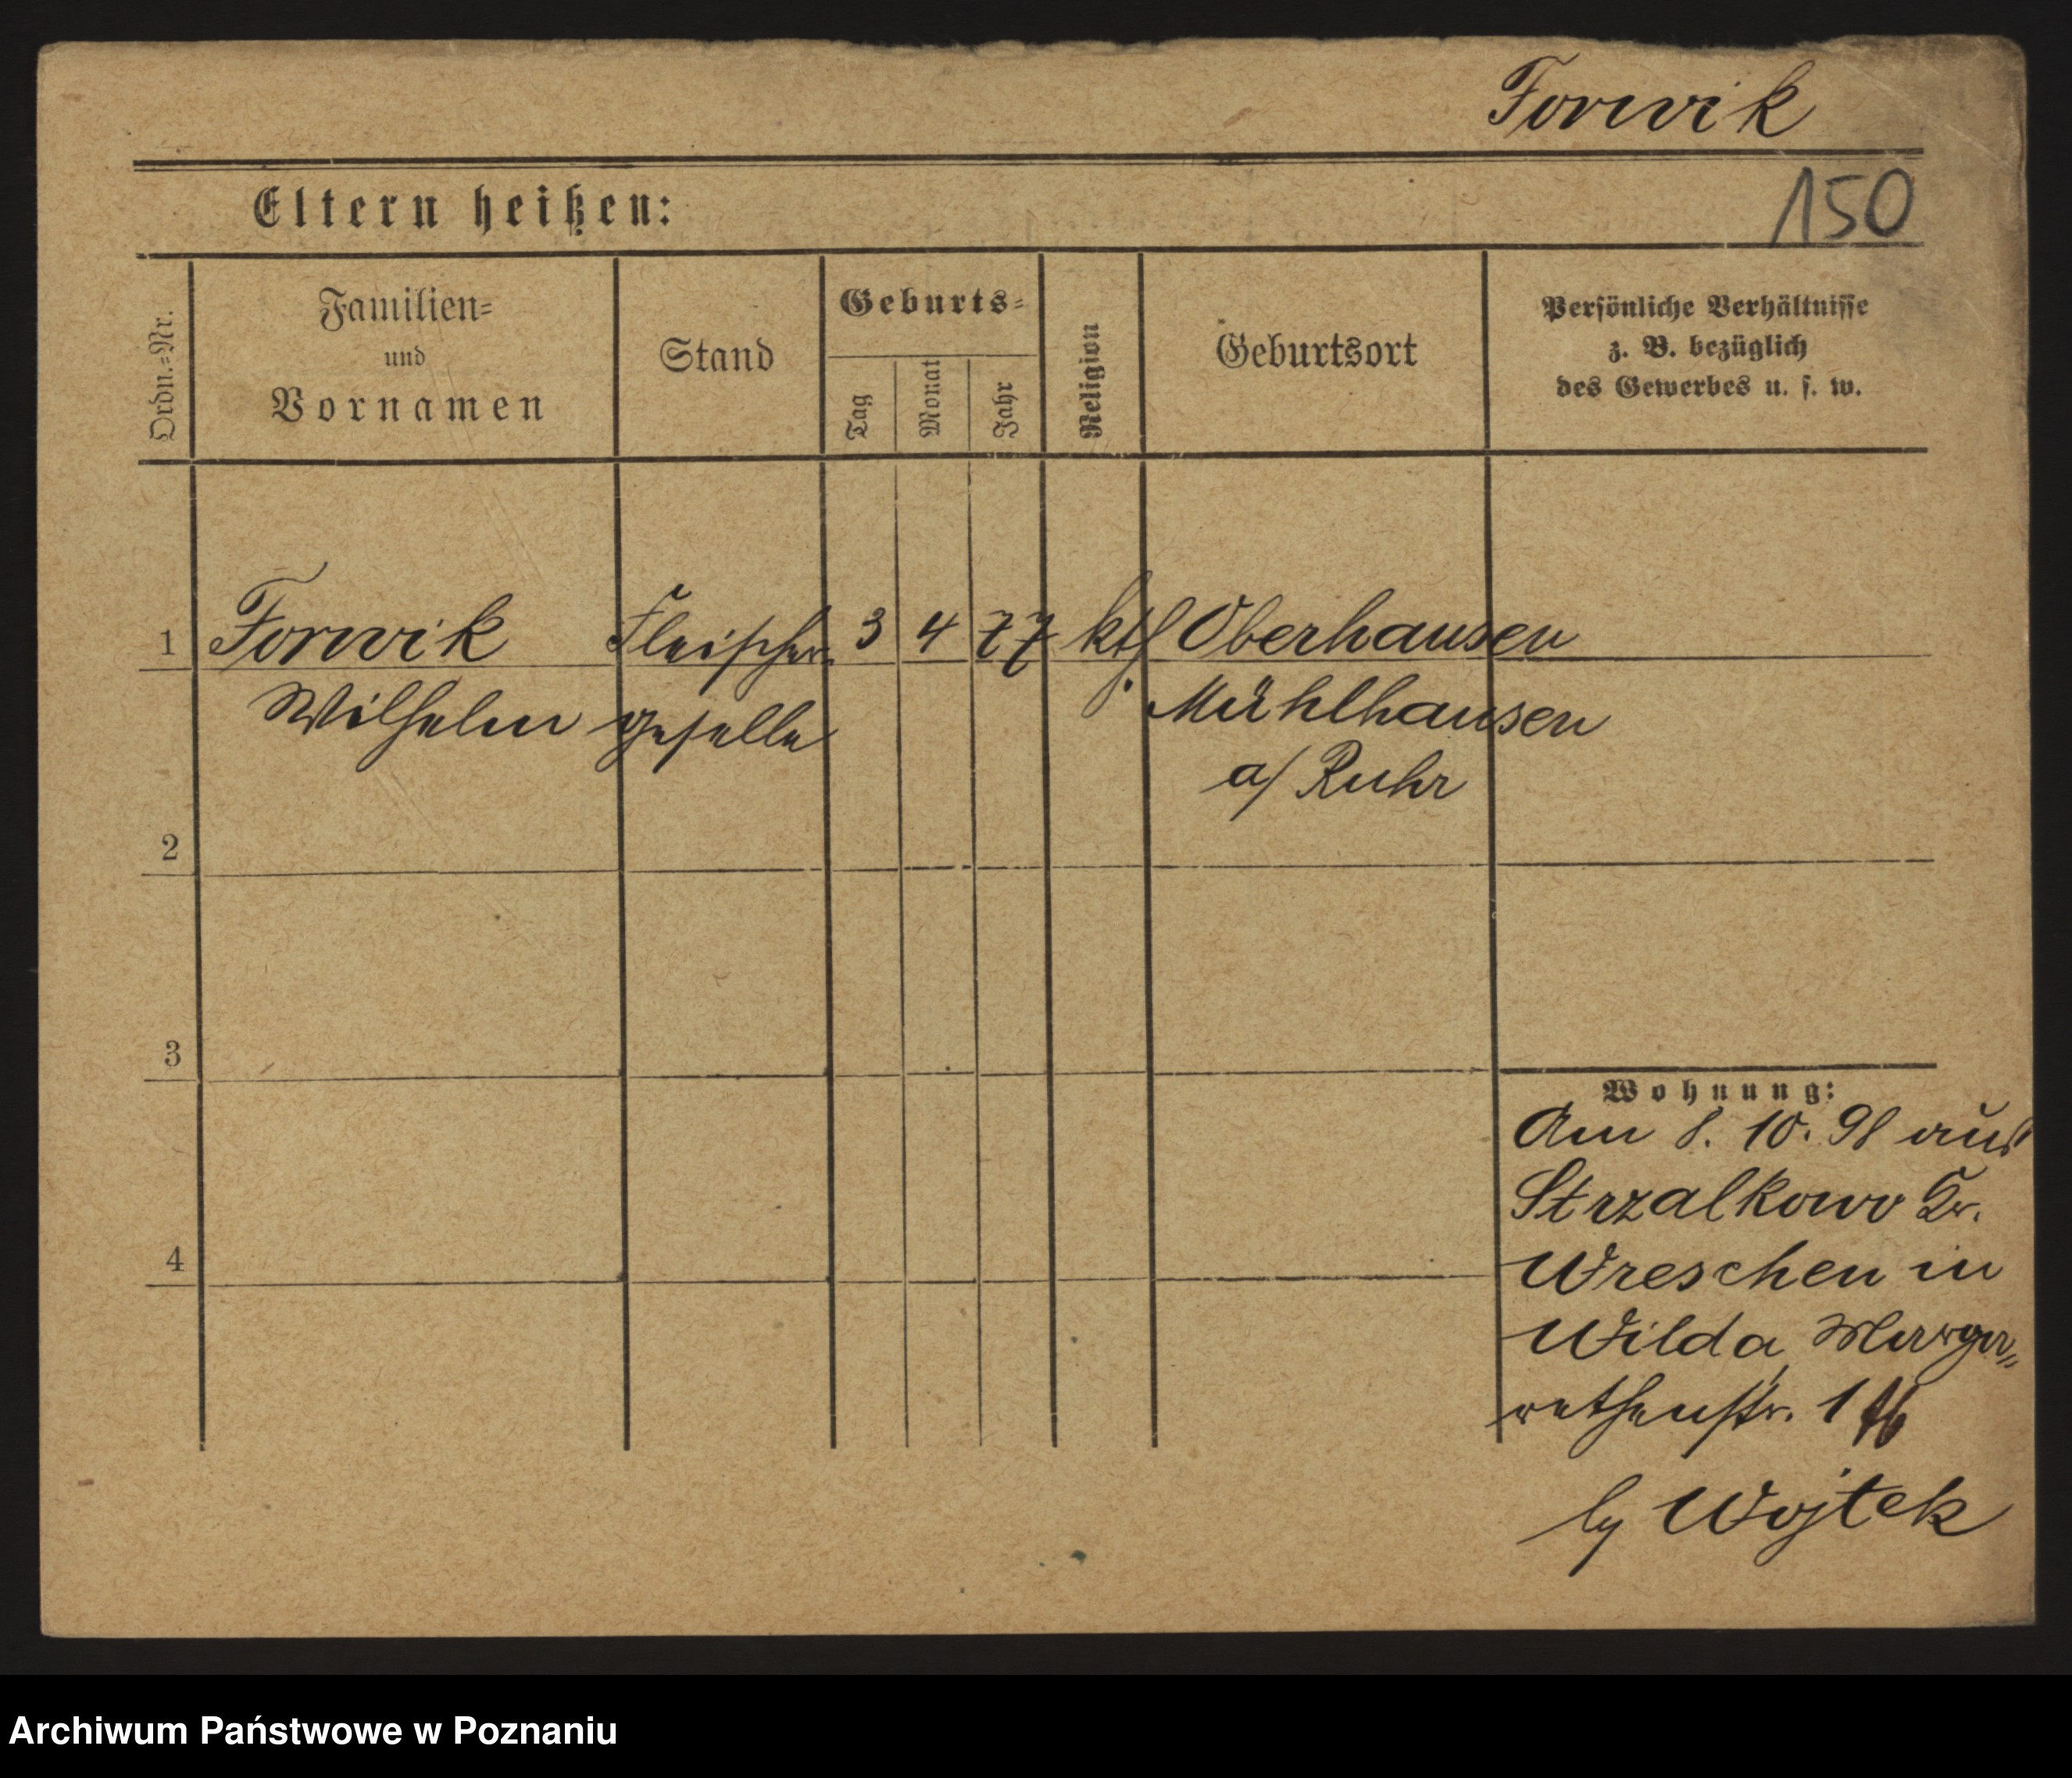 Forwik
Eltern heißen:
150
Ordn.-Nr.
Familien-
und
Vornamen
Stand
Geburts-
Tag
Monat
Jahr
Religion
Geburtsort
Persönliche Verhältnisse
z. B. bezüglich
des Gewerbes u. s. w.
1 Forwik Fleischer 3 4 77 kth Oberhausen
Wilhelm geselle Mühlhausen
a/ Ruhr
2
3
4
Wohnung:
Am 8. 10. 98 aus
Strzalkowo Kr.
Wreschen in
Wilda, Marga=
rethenstr. 1
by Wojtek
Archiwum Państwowe w Poznaniu